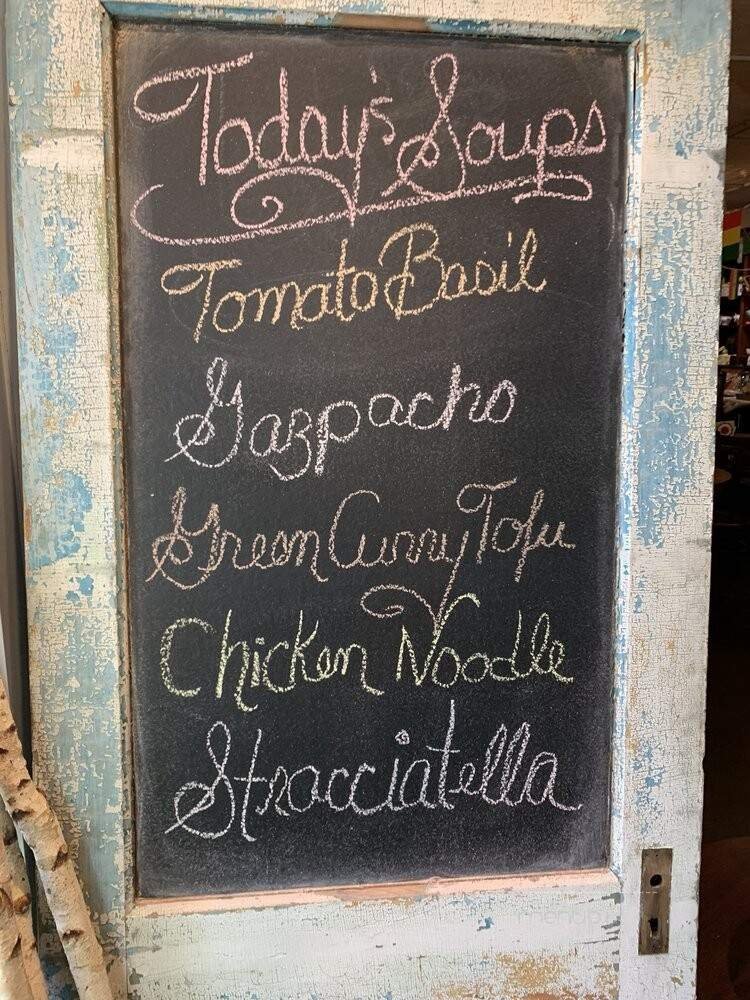 Today's Soups
Tomato Basil
Gazpacho
Green Curry Tofu
Chicken Noodle
Stracciatella